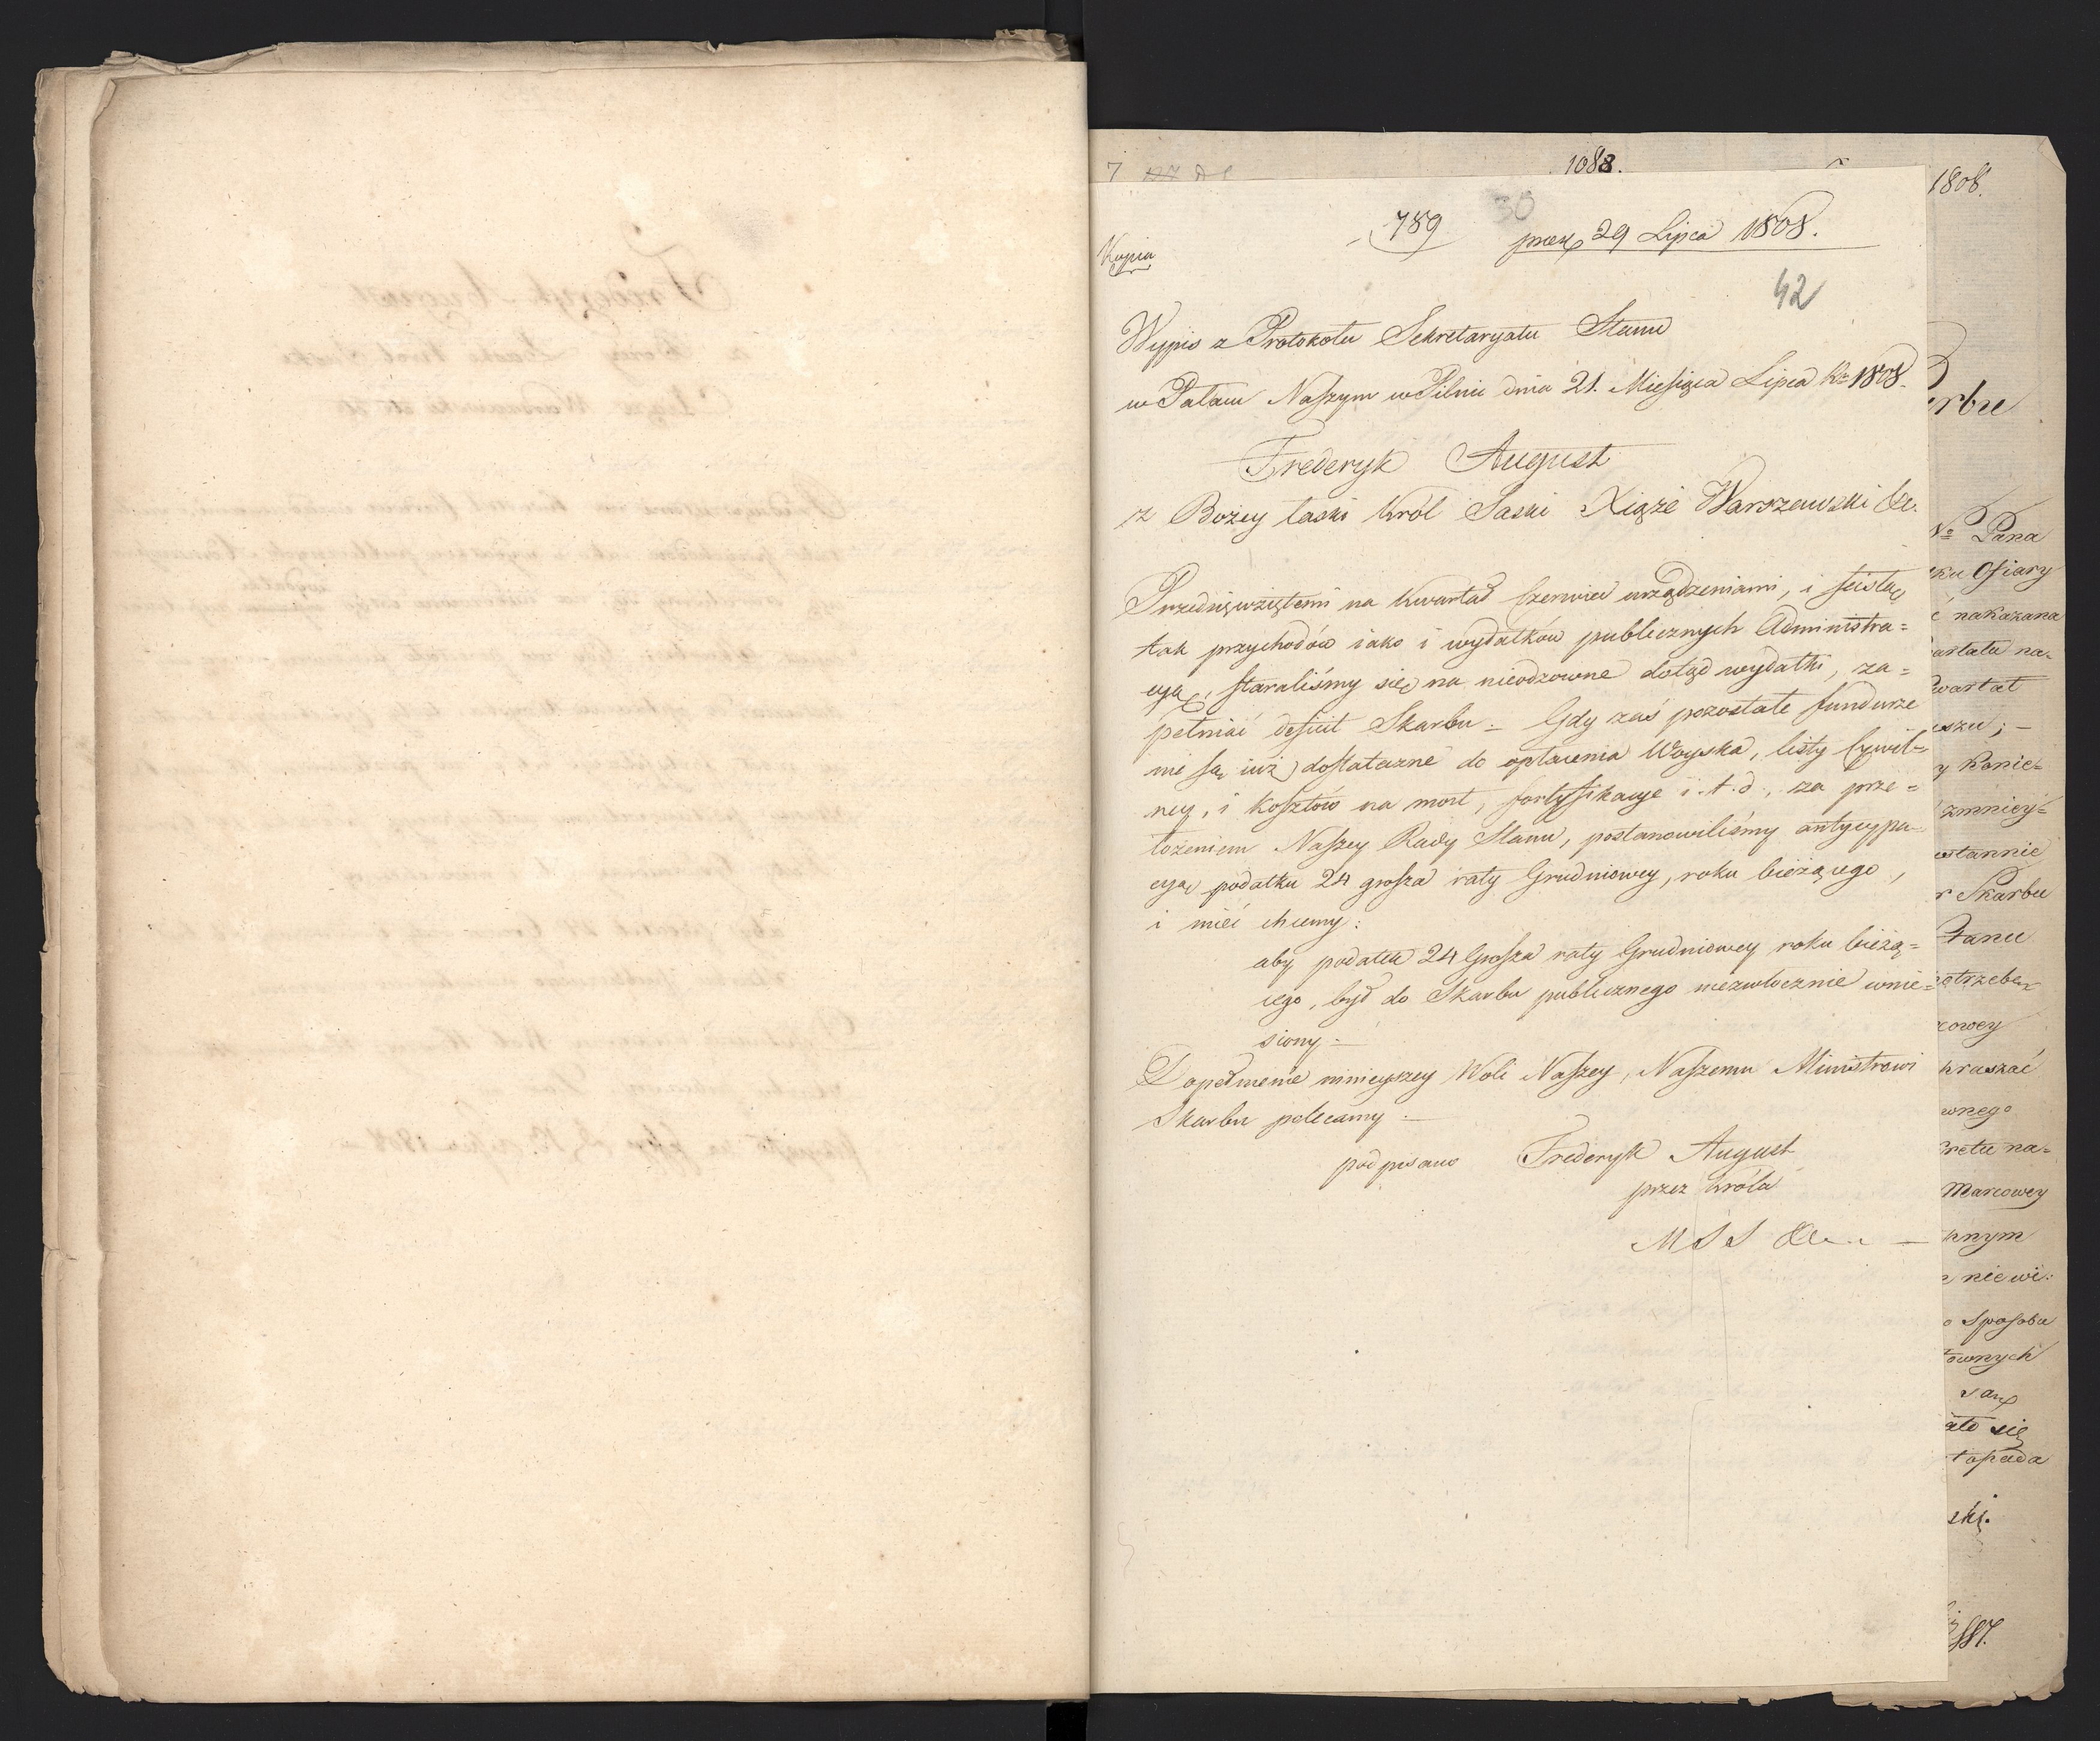 1088.
789
30
prez 29 Lipca 1808.
Kopia
42
Wypis z Protokołu Sekretaryatu Stanu
w Pałacu Naszym w Pilnic dnia 21. Miesiąca Lipca Rku 1808.
Frederyk August
z Bożey łaski Król Saski Xiąże Warszawski &c.
Przedsięwziętemi na kwartał Czerwca urządzeniami, i scisłą
tak przychodów iako i wydatków publicznych Administra=
cyą, staraliśmy się na nieodzowne dotąd wydatki, za=
pełniać deficit Skarbu. – Gdy zaś pozostałe fundusze
nie są iuż dostateczne do opłacenia Woyska, listy Cywil=
ney, i kosztów na most, fortyfikacye i.t.d., za prze=
łożeniem Naszey Rady Stanu, postanowiliśmy antycypa=
cyą podatku 24 grosza raty Grudniowey, roku bieżącego,
i mieć chcemy:
aby podatek 24 Grosza raty Grudniowey roku bieżą=
cego, był do Skarbu publicznego niezwłocznie wnie=
siony. –
Dopełnienie ninieyszey Woli Naszey, Naszemu Ministrowi
Skarbu polecamy. –
podpisano Frederyk August
przez Króla
M S S
1808.
rbu
Pana
ku Ofiary
ć nakazana
artału na=
wartał
uszu; –
y konie=
zmniey=
ustannie
r Skarbu
Stanu
otrzebę
cowey
kraszać
wnego
kretu na=
Marcowey
knym
niewi:
o sposobu
townych
ało się
topada
ski.